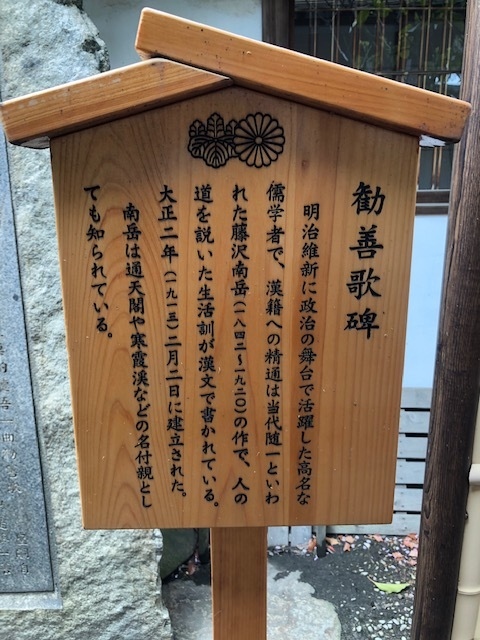 勧善歌碑
明治維新に政治の舞台で活躍した高名な
儒学者で、漢籍への精通は当代随一といわ
れた藤沢南岳(一八四二～一九二〇)の作で、人の
道を説いた生活訓が漢文で書かれている。
大正二年(一九一三)二月二日に建立された。
南岳は通天閣や寒霞渓などの名付親とし
ても知られている。